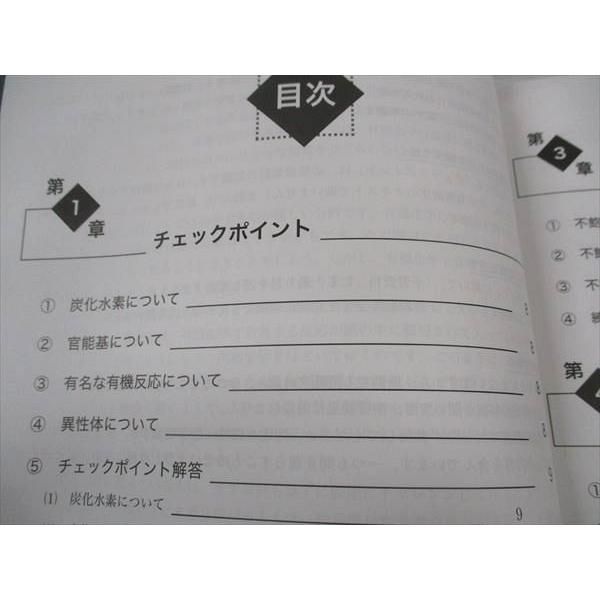 目次
第1章 チェックポイント
① 炭化水素について 8
② 官能基について 8
③ 有名な有機反応について 8
④ 異性体について 8
⑤ チェックポイント解答 9
(1) 炭化水素について 9
第3章
① 不飽
② 不飽
③ 不
④
第
①